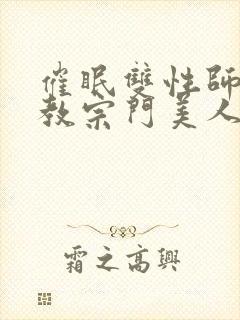 催眠雙性師
教宗門美人
霜之高興